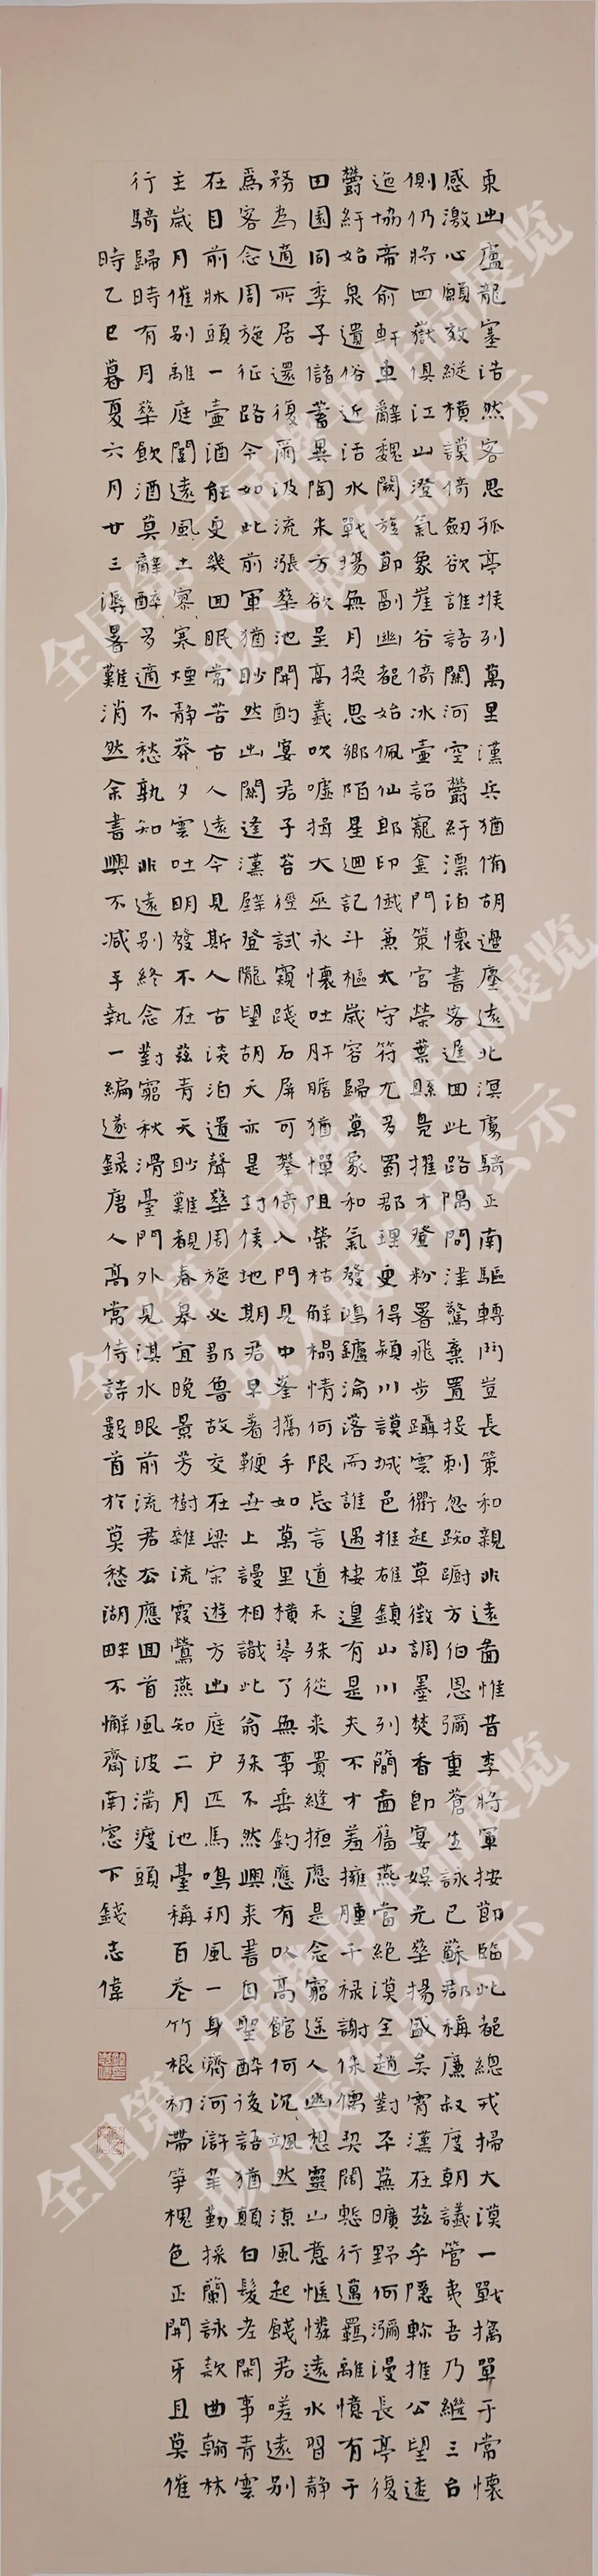 東出盧龍塞浩然客思孤亭堠列萬里漢兵猶備胡邊塵遠北溟虜騎正南驅轉鬥豈長策和親非遠圖惟昔李將軍按節臨此都總戎掃大漠一戰擒單于常懷
感激心願效縱橫謨倚劍欲誰語關河空鬱紆漂泊懷書客遲回此路隅問津驚棄置投刺忽踟躕方伯恩彌重蒼生詠已蘇郡稱廉叔度朝議管夷吾乃繼三台
側仍將四嶽俱江山澄氣象崖谷倚冰壺詔寵金門策官榮葉縣鳧擢才登粉署飛步躡雲衢起草徵調墨焚香即宴娛光華揚盛矣霄漢在茲乎隱軫推公望逶
迤協帝俞軒車辭魏闕旌節副幽都始佩仙郎印俄兼太守符尤多蜀郡理更得潁川謨城邑推雄鎮山川列簡圖舊燕當絕漠全趙對平蕪曠野何瀰漫長亭復
鬱紆始泉遺俗近活水戰場無月換思鄉陌星迴記斗樞歲容歸萬象和氣發鴻鑪淪落而誰遇棲遑有是夫不才羞擁腫干祿謝侏儒契闊慙行邁羈離憶有于
田園同季子儲蓄異陶朱方欲呈高義吹噓揖大巫永懷吐肝膽猶憚阻榮枯解榻情何限忘言道未殊從來貴縫掖應是念窮途人幽想靈山意愜憐遠水習靜
務為適所居還復爾汲流漲華池開酌宴君子苔徑試窺踐石屏可攀倚入門見中峯攜手如萬里橫琴了無事垂釣應有以高館何沉颯然涼風起餞君嗟遠別
為客念周旋征路今如此前軍猶眇然出關逢漢壁登隴望胡天亦是封侯地期君早著鞭世上謾相識此翁殊不然興來書自聖醉後語猶顛白髮老閑事青雲
在目前牀頭一壺酒能更幾回眠常苦古人遠今見斯人古淡泊遺聲華周旋必鄒魯故交在梁宋遊方出庭戶匹馬鳴朔風一身濟河滸辛勤採蘭詠款曲翰林
主歲月催別離庭闈遠風土寥寒煙靜莽夕雲吐明發不在茲青天眇難覩春皋宜晚景芳樹雜流霞鶯燕知二月池臺稱百花竹根初帶笋槐色正開牙且莫催
行騎歸時有月華飲酒莫辭醉多適不愁孰知非遠別終念對窮秋滑臺門外見淇水眼前流君去應回首風波滿渡頭
時乙巳暮夏六月廿三溽暑難消然余書興不減手執一編遂錄唐人高常侍詩數首於莫愁湖畔不懈齋南窓下錢志偉